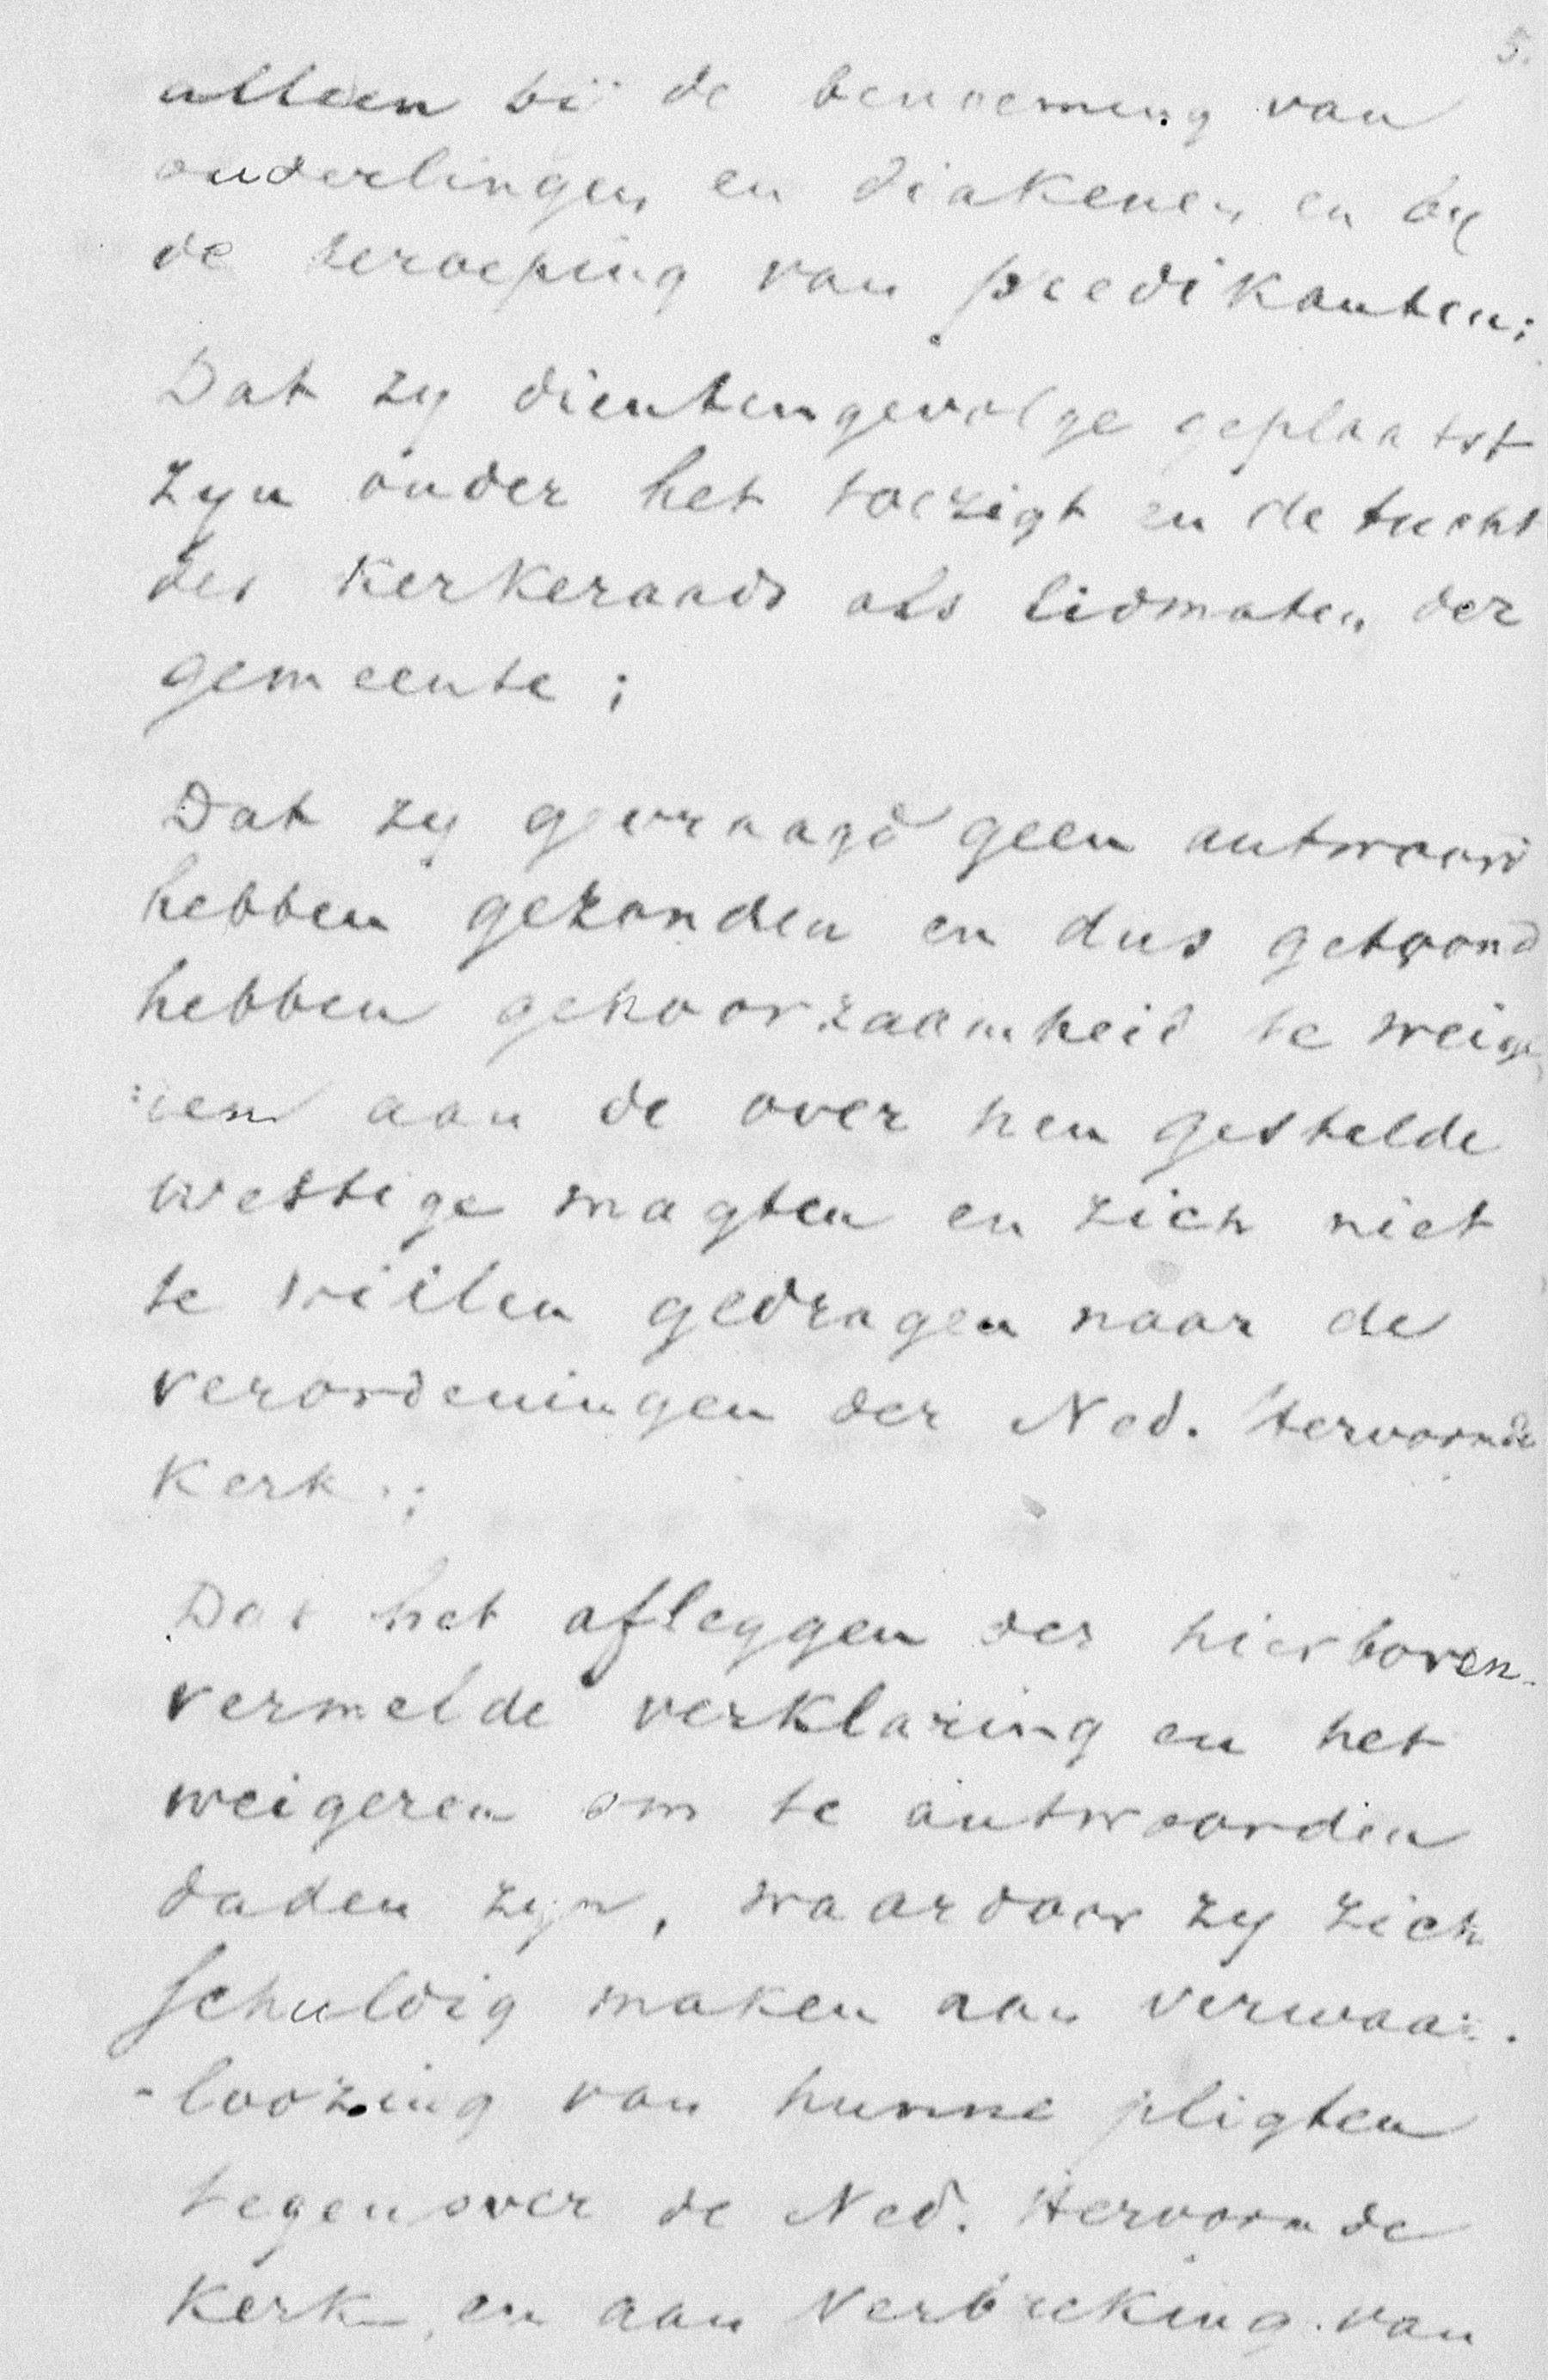 5.
alleen bij de benoeming van
ouderlingen en diakenen en by
de beroeping van predikanten;
Dat zy dientengevolge geplaatst
zyn onder het toezigt en de tucht
des Kerkeraads als lidmaten der
gemeente;
Dat zy gevraagd geen antwoord
hebben gezonden en dus getoond
hebben gehoorzaamheid te weige
:ren aan de over hen gestelde
wettige magten en zich niet
te willen gedragen naar de
verordeningen der Ned. Hervormde
Kerk.;
Dat het afleggen der hierboven-
vermelde verklaring en het
weigeren om te antwoorden
daden zyn, waardoor zy zich
schuldig maken aan verwaar-
-loozing van hunne pligten
tegenover de Ned. Hervormde
Kerk, en aan Verbreking van